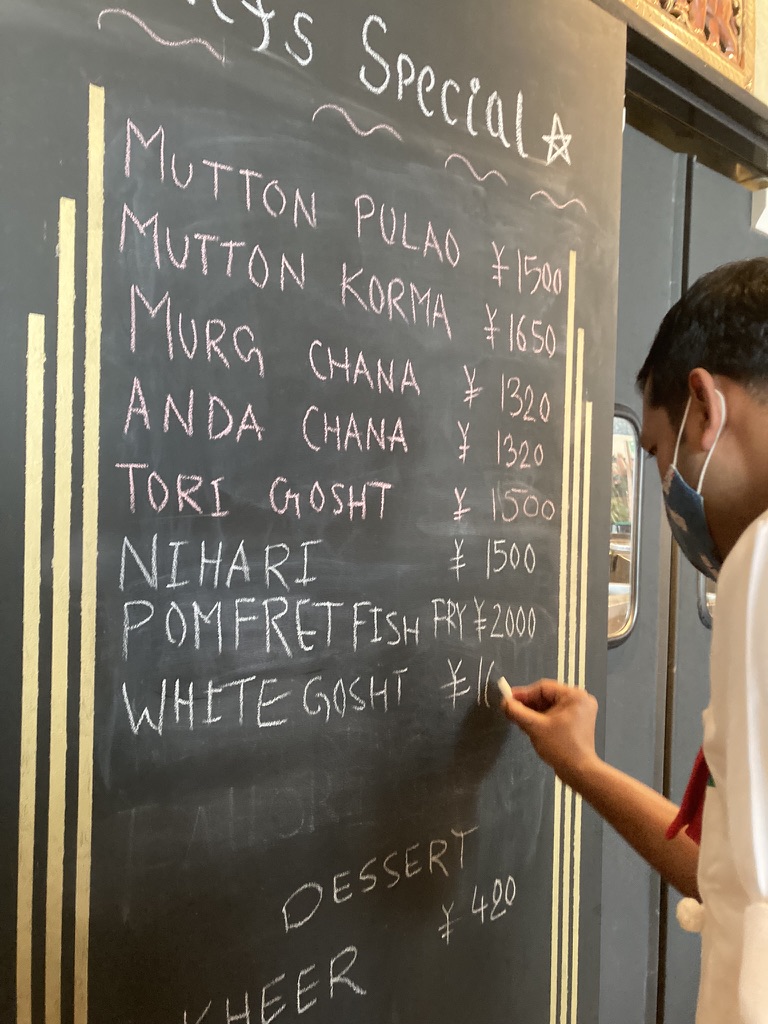 Special ☆
MUTTON PULAO ¥1500
MUTTON KORMA ¥1650
MURG CHANA ¥1320
ANDA CHANA ¥1320
TORI GOSHT ¥1500
NIHARI ¥1500
POMFRET FISH FRY ¥2000
WHITE GOSHT ¥1
DESSERT
KHEER ¥420